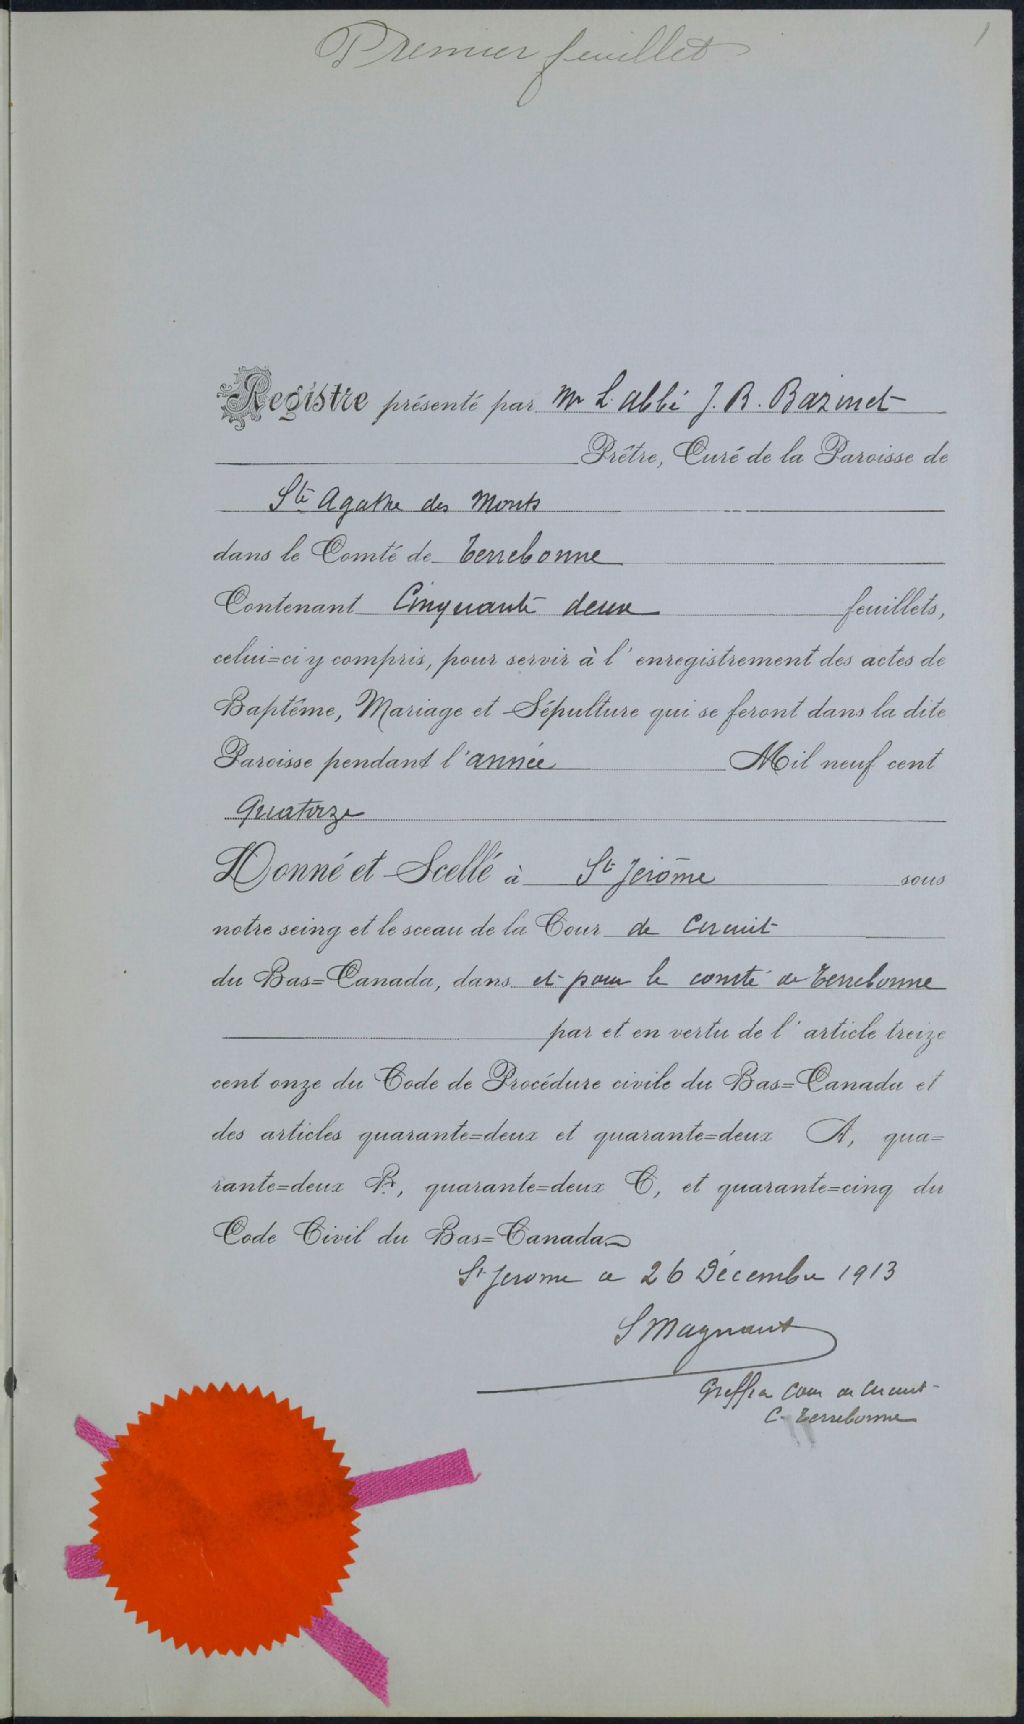 1
Premier feuillet
Registre présenté par Mr L'abbé J. B. Bazinet
Prêtre, Curé de la Paroisse de
Ste Agathe des Monts
dans le Comté de Terrebonne
Contenant Cinquante deux feuillets,
celui=ci y compris, pour servir à l'enregistrement des actes de
Baptême, Mariage et Sépulture qui se feront dans la dite
Paroisse pendant l'année Mil neuf cent
Quatorze
Donné et Scellé à St Jérôme sous
notre seing et le sceau de la Cour de Circuit
du Bas=Canada, dans et pour le comté de Terrebonne
par et en vertu de l'article treize
cent onze du Code de Procédure civile du Bas=Canada et
des articles quarante=deux et quarante=deux A, qua=
rante=deux B, quarante=deux C, et quarante=cinq du
Code Civil du Bas=Canada
St Jerome ce 26 Décembre 1913
S Magnant
Greffier Cour de Circuit
C. Terrebonne